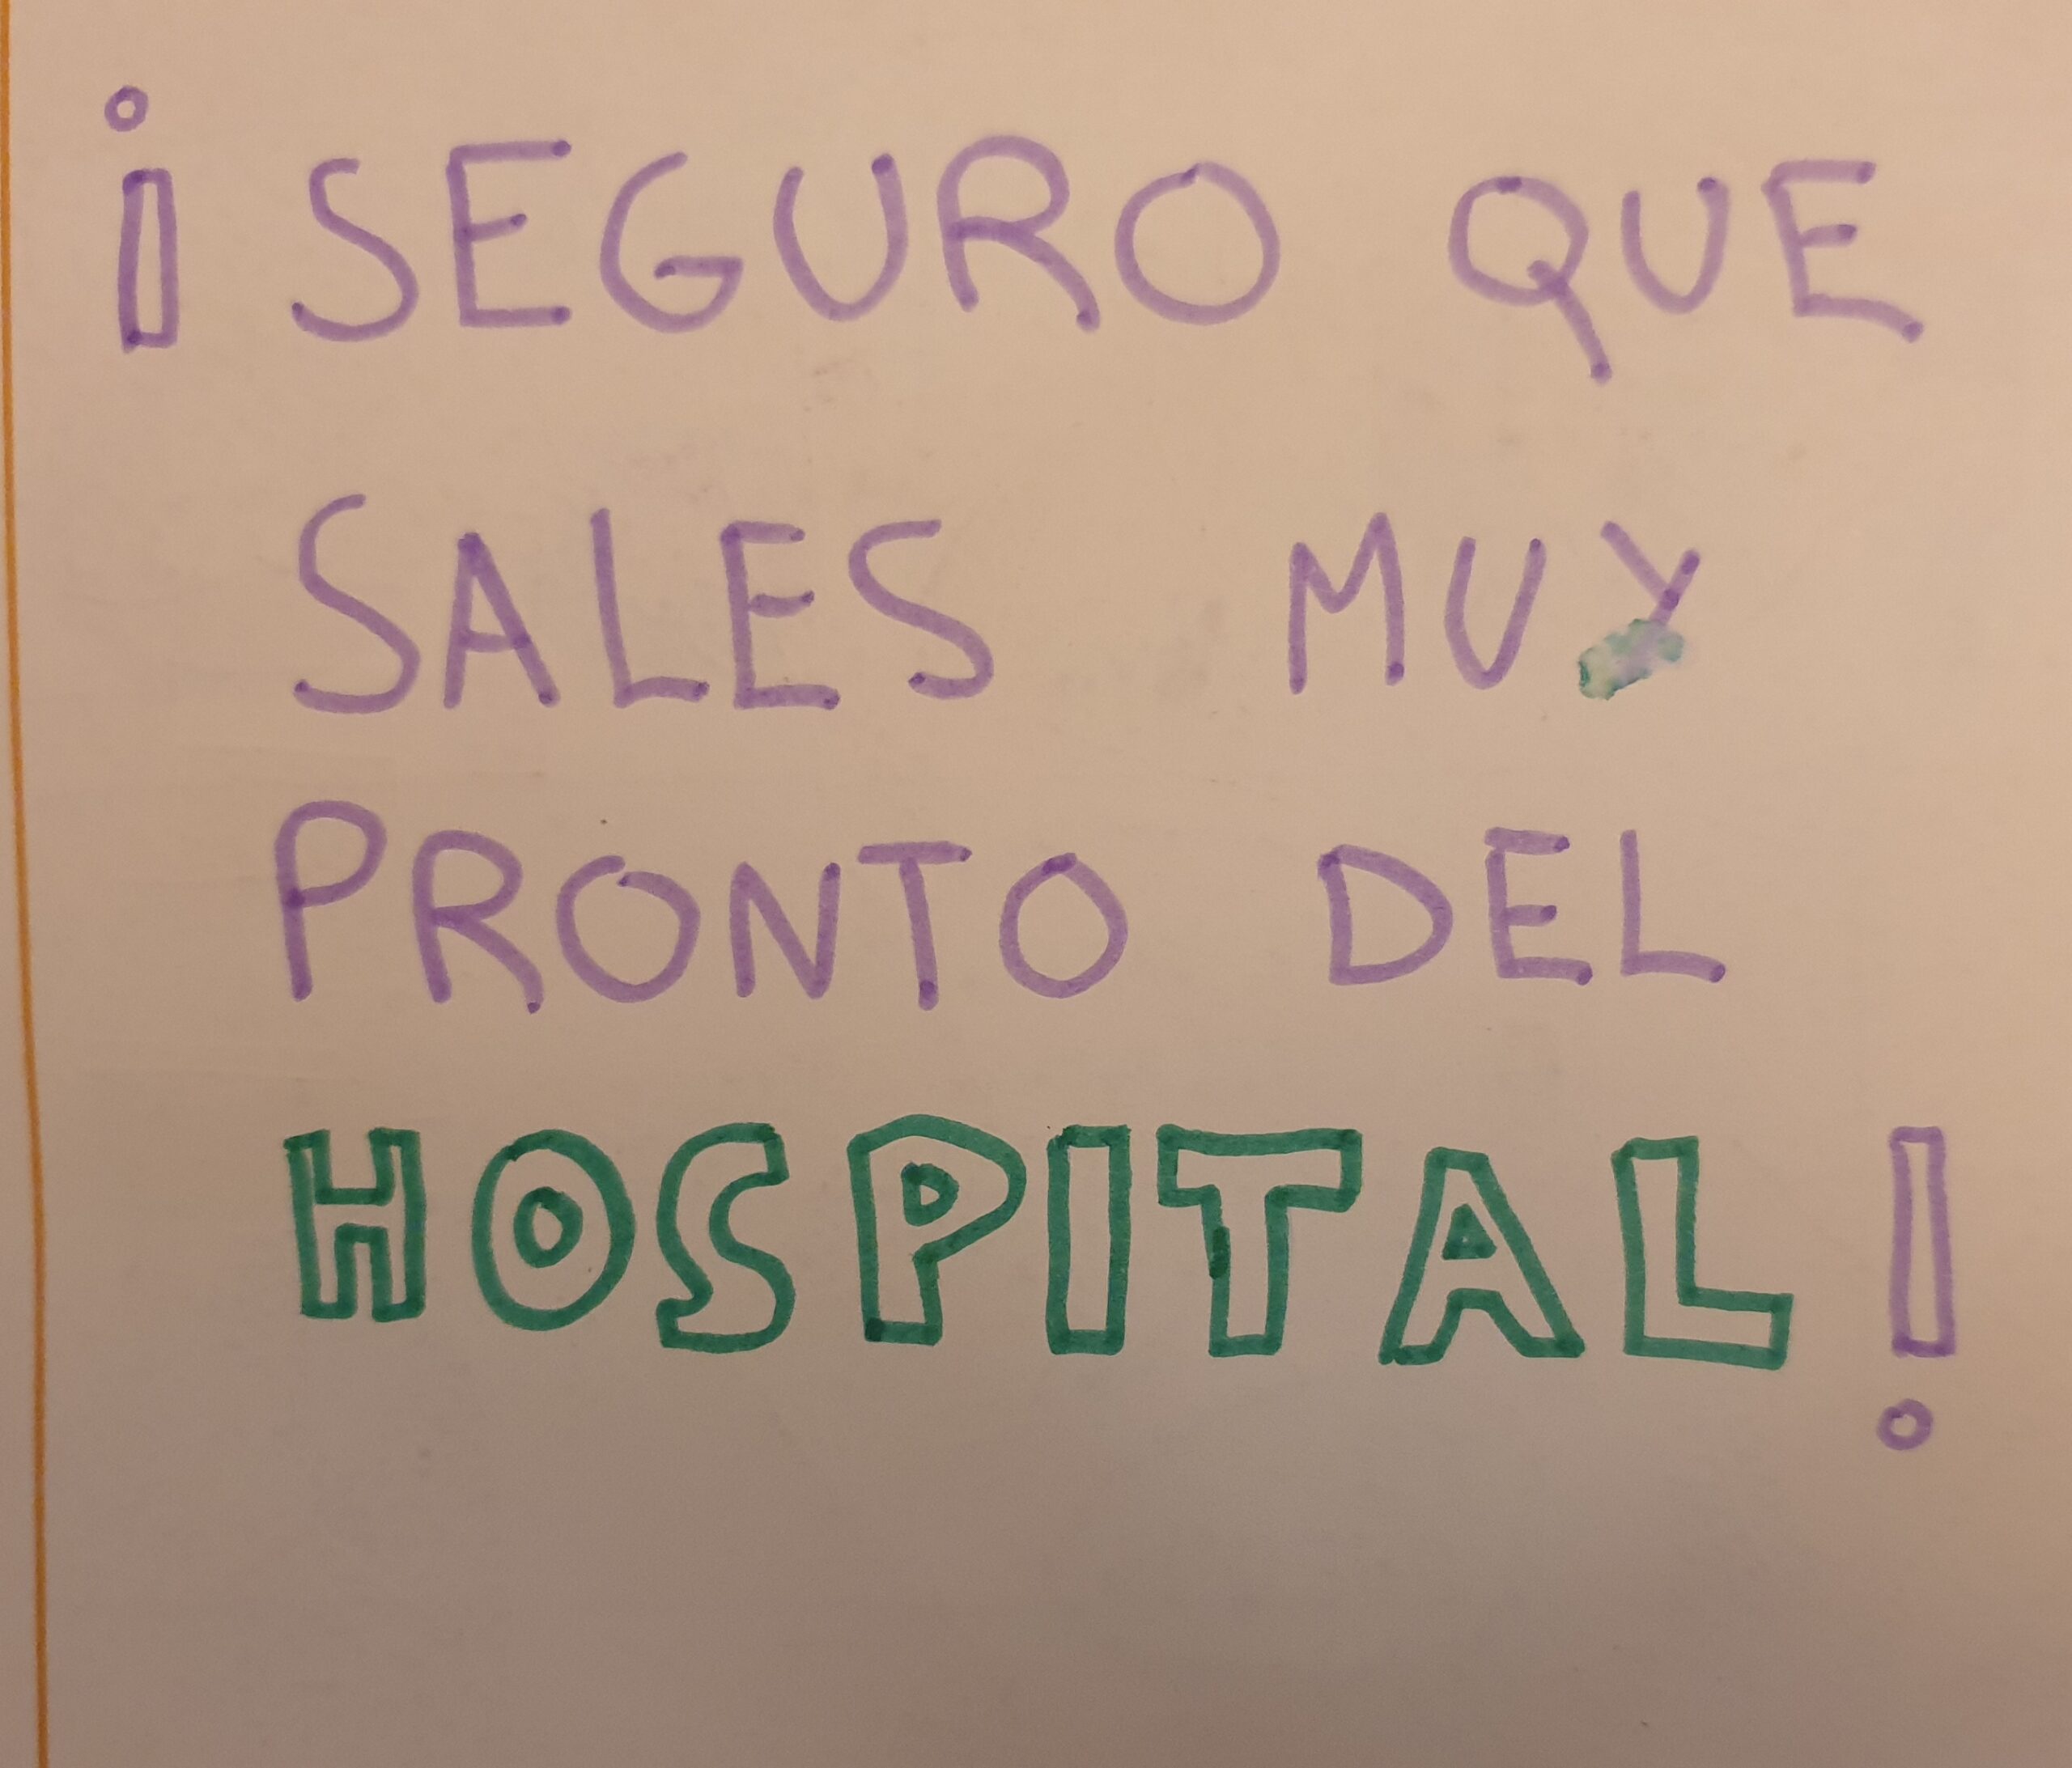 ¡SEGURO QUE
SALES MUY
PRONTO DEL
HOSPITAL!